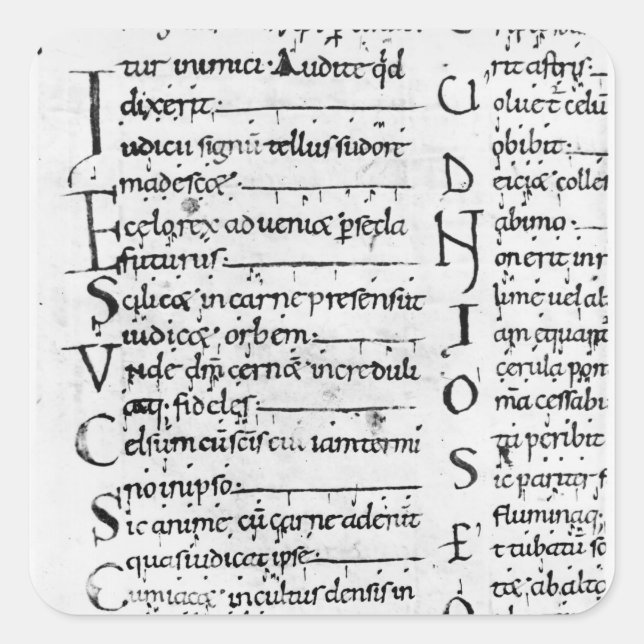 tur inimici. Audite qd̄
dixerit:
Iudicii signū tellus sudore
madescæ
E celo rex adveniæ p secla
futurus:
Scilicæ in carne presens ut
iudicæ orbem:
Unde dm̄ cernæ increduli
atq; fideles
Celsum cū scis evi iam termi
no in ipso:
Sic anime cū carne aderūt
quas iudicat ipse:
Cumiacæ incultus densis in
rit astris:
Uoluet celū
obibit:
Deiciæ colle
ab imo
Non erit in r
lime vel al
Iam equant̄
cerula pon
Om̄a cessabū
tu peribit
Sic pariter f
fluminaq;
Et tubatū so
tæ ab alto
O